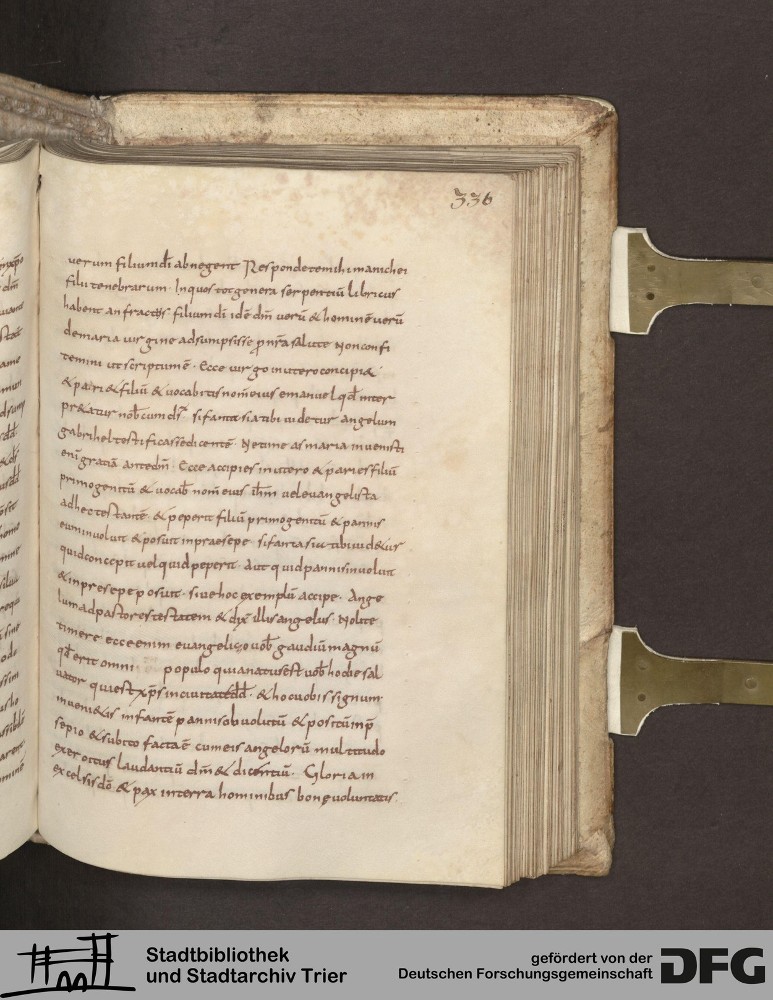 336
uerum filium dī abnegent Respondete mihi manichei
filii tenebrarum · In quos tot genera serpentiū libricus
habent anfractos filium dī idē dm̄ uerū & hominē uerū
de maria uirgine adsumpsisse p nr̄a salute Non confi
temini ut scriptumē · Ecce uirgo in utero concipi&
& pari& filiū & uocabitis nom̄ eius emanuel qđ inter
pr&atur nob̄cum ds̄ · si fantasia tibi uidetur angelum
gabrihel testificasse dicentē · Ne time as maria inuenisti
enī gratiā ante dm̄ · Ecce accipies in utero & paries filiū
primogenitū & uocab̄ nom̄ eius ihm̄ uel euangelista
ad hec testantē · & peperit filiū primogenitū & pannis
eum inuoluit & posuit in praesepe · si fantasia tibi uid&ur
quid concepit uel quid peperit · Aut quid pannis inuoluit
& in presepe posuit · siue hoc exemplū accipe · Ange
lum ad pastores testatem & dix̄ illis angelus · Nolite
timere ecce enim euangelizo uob̄ gaudiū magnū
qđ erit omni populo quia natus est uob̄ hodie sal
uator qui est xp̄s in ciuitate dd̄ · & hoc uobis signum
inueni&is infantē pannis obuolutū & positū in p̄
sepio & subito facta ē cum eis angelorū multitudo
exercitus laudantiū dm̄ & dicentiū · Gloria in
excelsis dō & pax in terra hominibus bonę uoluntatis ·
Stadtbibliothek
und Stadtarchiv Trier
gefördert von der
Deutschen Forschungsgemeinschaft
DFG